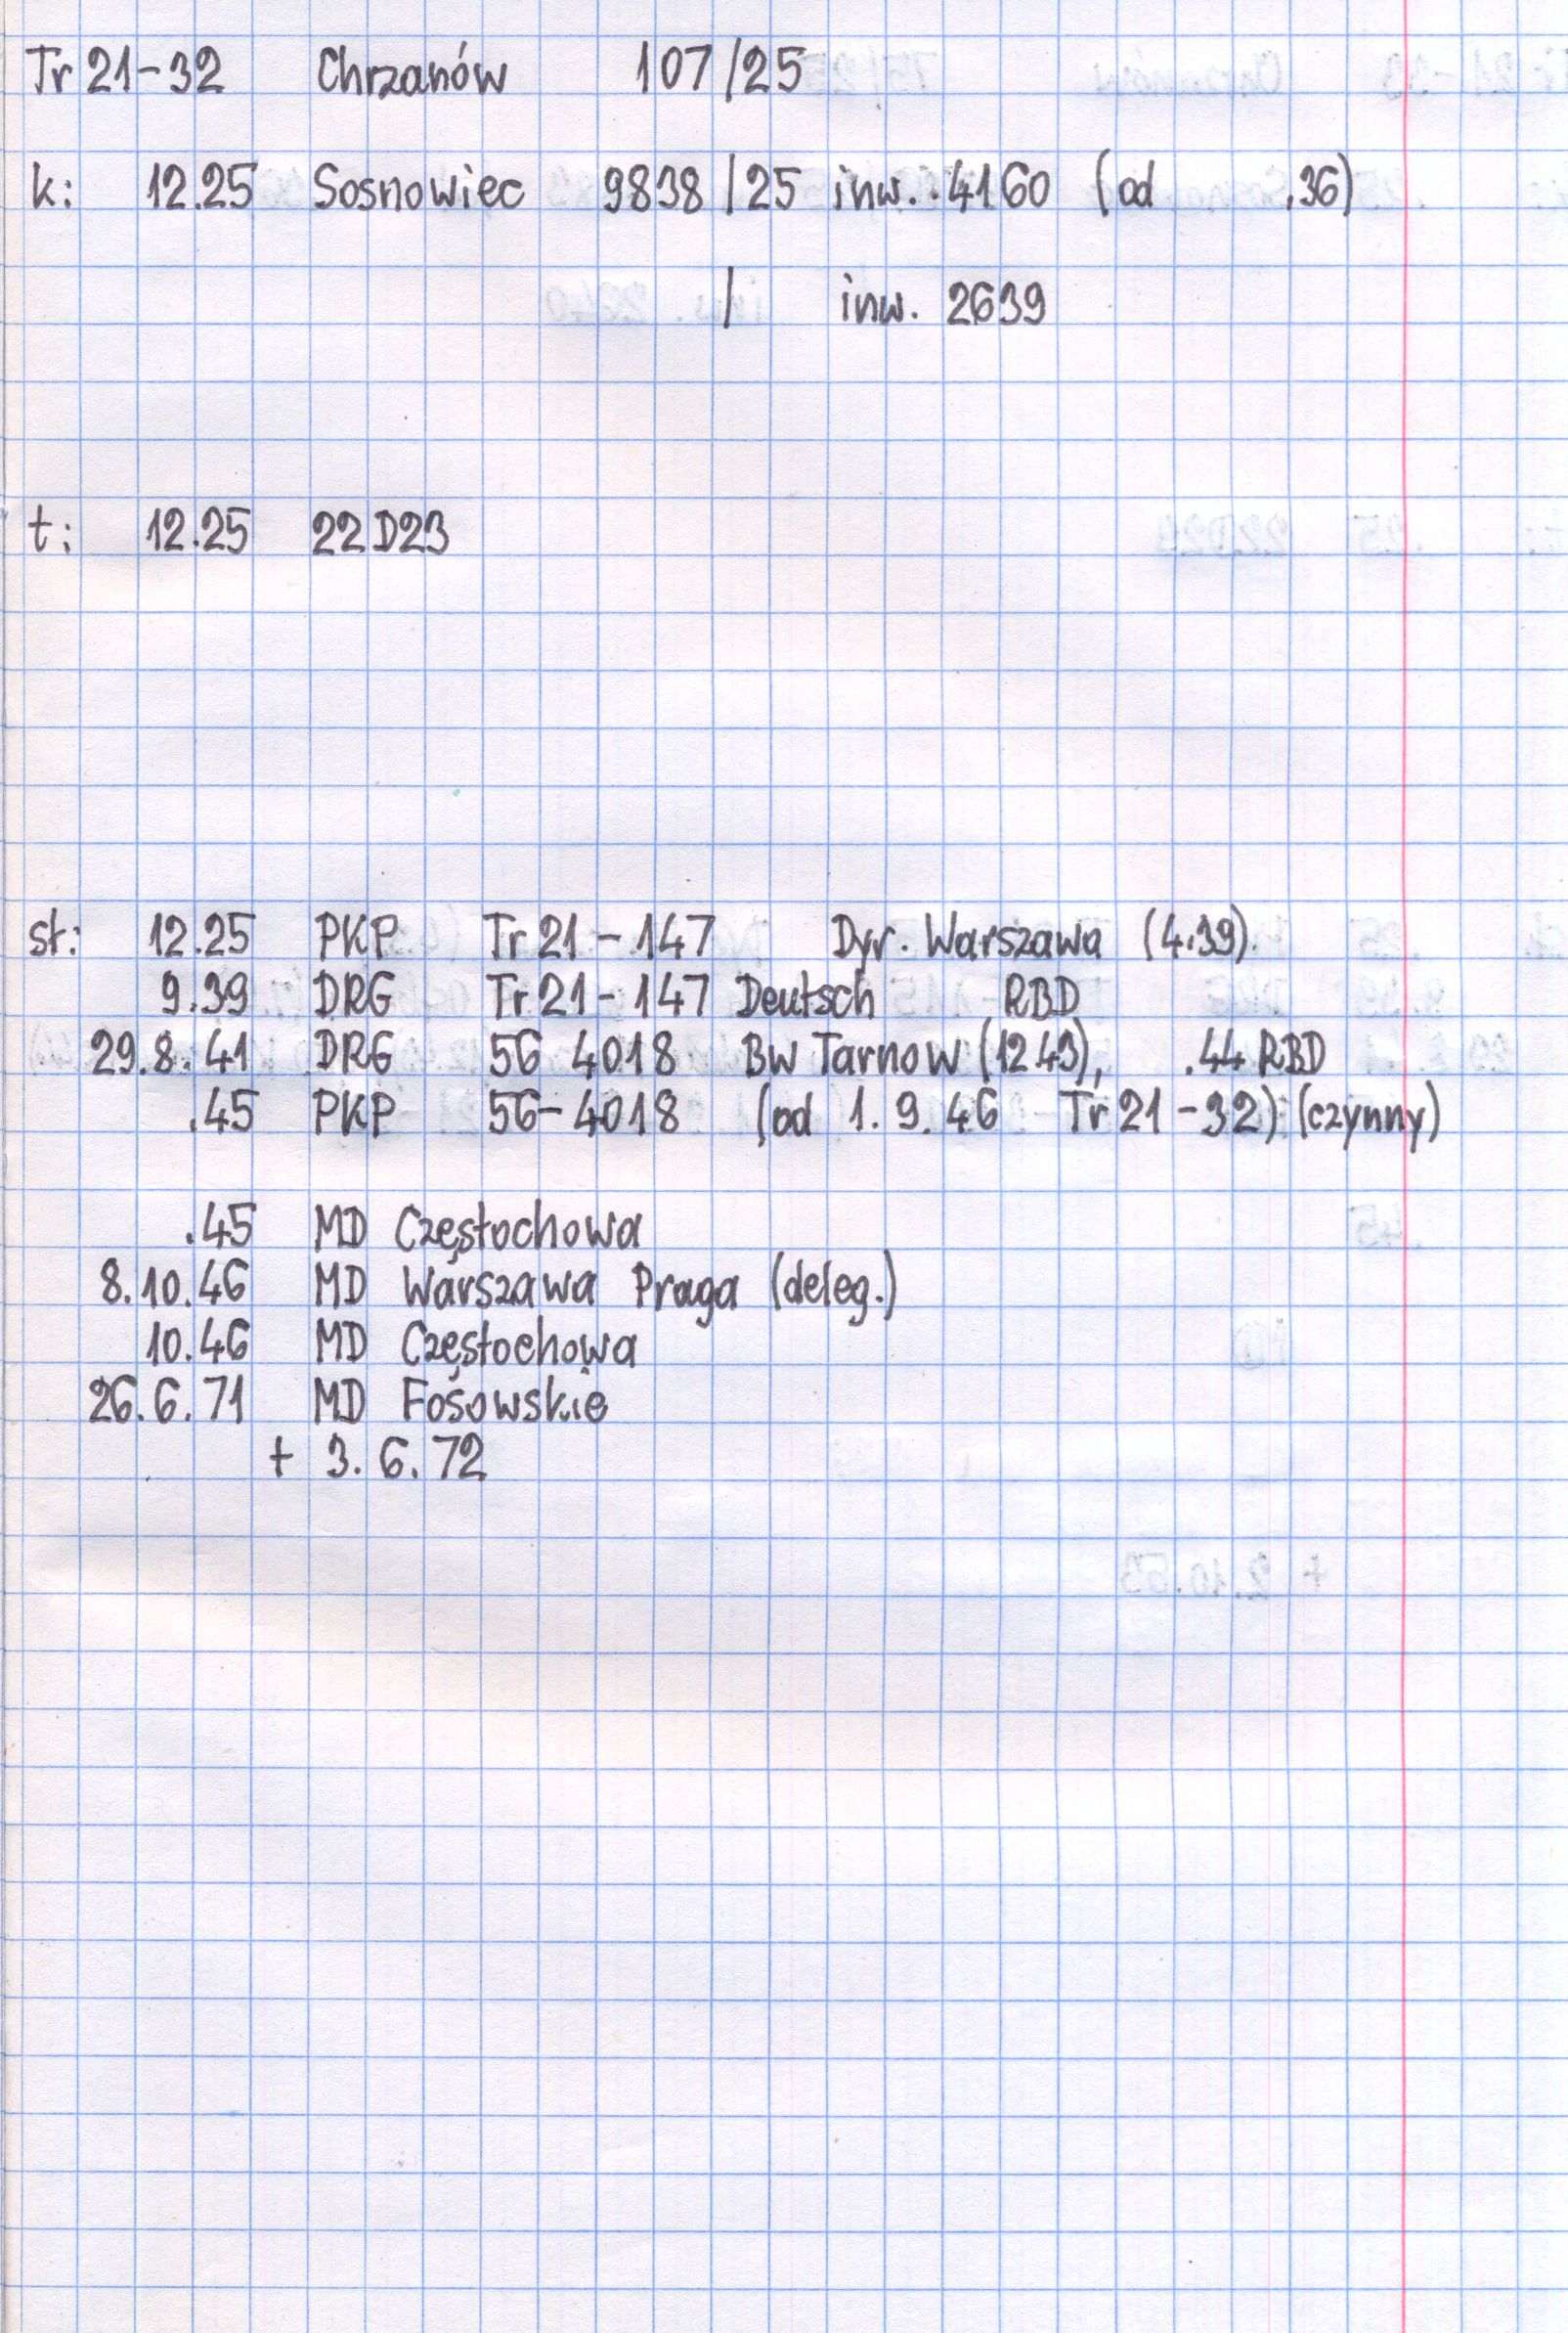 Tr 21-32 Chrzanów 107/25
k: 12.25 Sosnowiec 9838/25 inw. 4160 (od .36)
/ inw. 2639
t: 12.25 22D23
st: 12.25 PKP Tr 21-147 Dyr. Warszawa (4.39)
9.39 DRG Tr 21-147 Deutsch RBD
29.8.41 DRG 56 4018 BW Tarnow (12.43), .44 RBD
.45 PKP 56-4018 (od 1.9.46 Tr 21-32) (czynny)
.45 MD Częstochowa
8.10.46 MD Warszawa Praga (deleg.)
10.46 MD Częstochowa
26.6.71 MD Fosowskie
+ 3.6.72